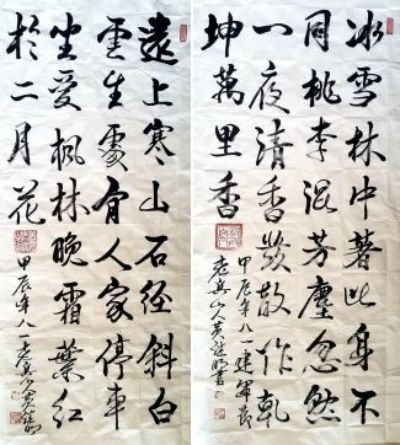 冰雪林中著此身不
同桃李混芳塵忽然
一夜清香發散作乾
坤萬里香
甲辰年八一建軍節
老兵山人黄明書
遠上寒山石径斜白
雲生處有人家停車
坐愛楓林晚霜葉紅
於二月花
甲辰年八一老兵黄明